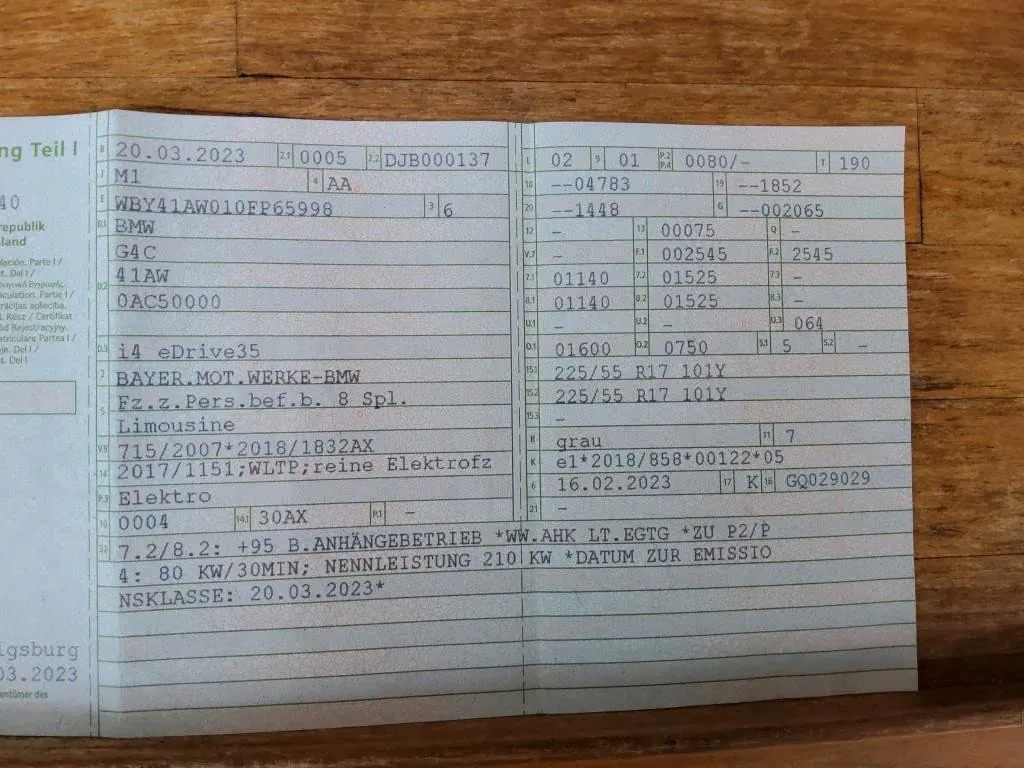 ng Teil I
40
republik
land
lación. Parte I /
t. Del I /
iculation. Partie I /
trācijas apliecība.
I. Rész / Certifikat
ód Rejestracyjny.
atriculare Partea I /
je. Del I /
t. Del I
igsburg
03.2023
entümer des
B 20.03.2023 2.1 0005 2.2 DJB000137
J M1 4 AA
E WBY41AW010FP65998 3 6
D.1 BMW
G4C
D.2 41AW
0AC50000
D.3 i4 eDrive35
2 BAYER.MOT.WERKE-BMW
5 Fz.z.Pers.bef.b. 8 Spl.
Limousine
V.9 715/2007*2018/1832AX
14 2017/1151;WLTP;reine Elektrofz
P.3 Elektro
10 0004 14.1 30AX P.1 -
L 02 9 01 P.2 P.4 0080/- T 190
18 --04783 19 --1852
20 --1448 G --002065
12 - 13 00075 Q -
V.7 - F.1 002545 F.2 2545
7.1 01140 7.2 01525 7.3 -
8.1 01140 8.2 01525 8.3 -
U.1 - U.2 - U.3 064
O.1 01600 O.2 0750 S.1 5 S.2 -
15.1 225/55 R17 101Y
15.2 225/55 R17 101Y
15.3 -
R grau 11 7
K e1*2018/858*00122*05
6 16.02.2023 17 K 16 GQ029029
21 -
22 7.2/8.2: +95 B.ANHÄNGEBETRIEB *WW.AHK LT.EGTG *ZU P2/P
4: 80 KW/30MIN; NENNLEISTUNG 210 KW *DATUM ZUR EMISSIO
NSKLASSE: 20.03.2023*